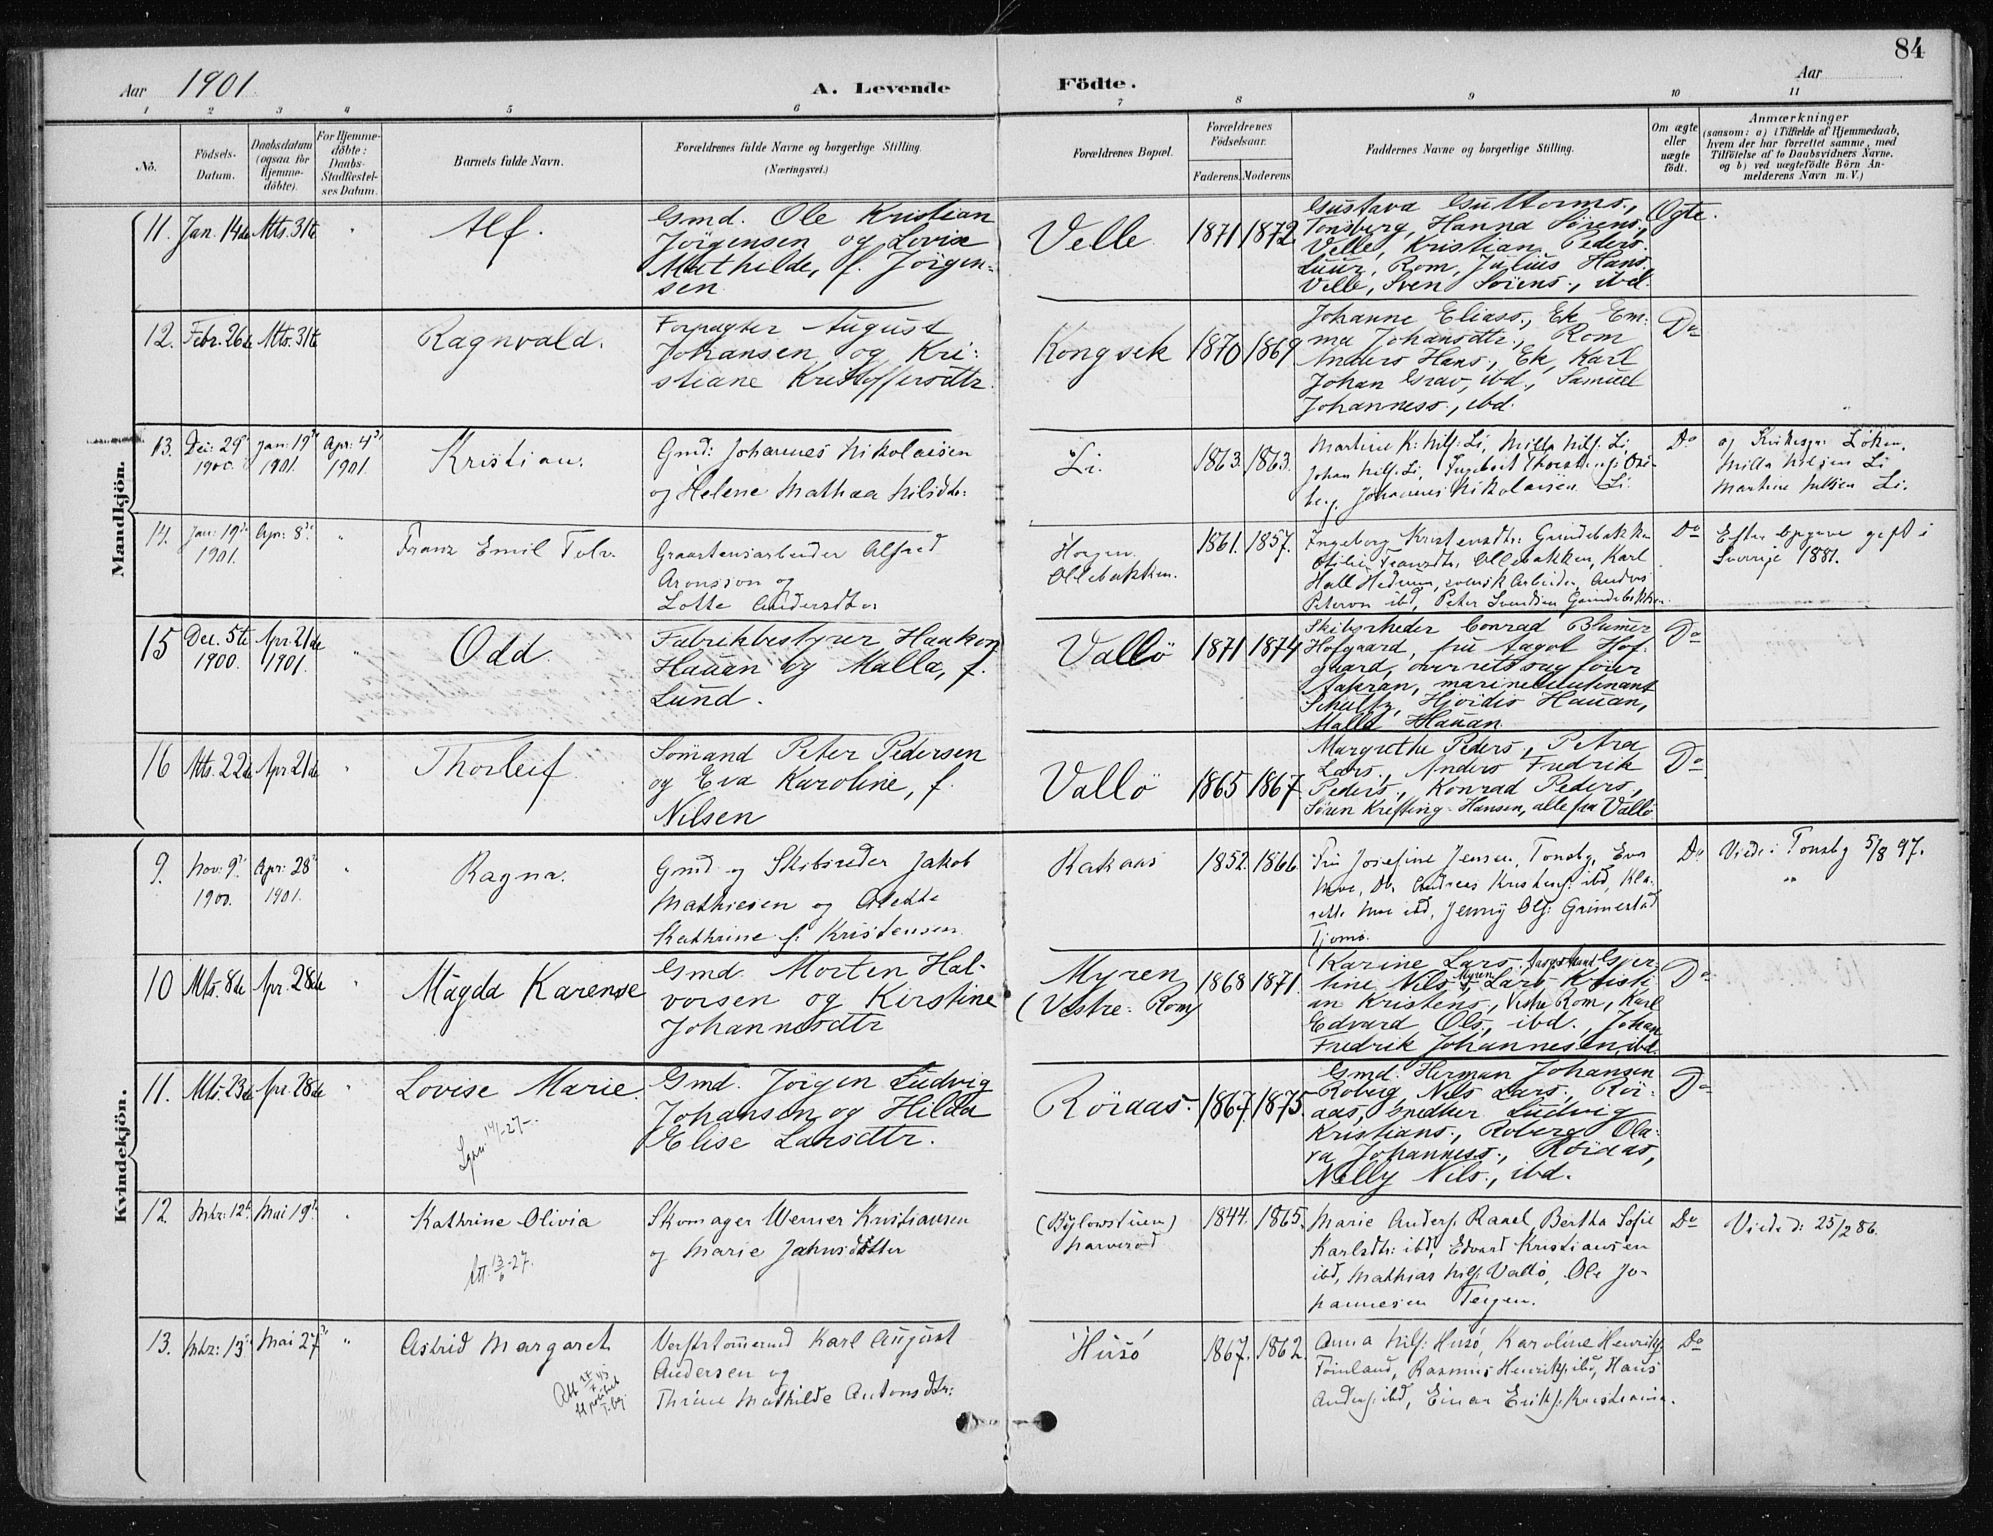 84
Aar 1901
A. Levende Födte.
Aar
1 2 3 4 5 6 7 8 9 10 11
No.
Födsels-
Datum.
Daabsdatum
(ogsaa for
Hjemme-
döbte).
For Hjemme-
döbte:
Daabs-
Stadfæstel-
ses Datum.
Barnets fulde Navn.
Forældrenes fulde Navne og borgerlige Stilling.
(Næringsvei.)
Forældrenes Bopæl.
Forældrenes
Födselsaar.
Faderens. Moderens.
Faddernes Navne og borgerlige Stilling.
Om ægte
eller
uægte
födt.
Anmærkninger
(saasom: a) i Tilfælde af Hjemmedaab,
hvem der har forrettet samme, med
Tilföielse af to Daabsvidners Navne,
og b) ved uægtefödte Börn An-
melderens Navn m. V.)
Mandkjön.
11. Jan. 14de Mts. 31te " Alf.
Gmd. Ole Kristian
Jörgensen og Lovise
Mathilde, f. Jörgen-
sen
Velle 1871 1872
Gustava Guttorms.,
Tönsberg, Hanna Sörens.,
Velle, Kristian Peders.
Rom, Julius Hans.
Velle, Sven Sörens., ibd.
Ægte.
12. Febr. 26de Mts. 31te Ragnvald.
Forpagter August
Johansen og Kri-
stiane Kristoffersdtr.
Kongseik 1870 1869
Johanne Eliass., Ek, Em-
ma Johansdtr., Rom
Anders Hans., Ek, Karl
Johan Grav, ibd., Samuel
Johanness., ibd.
Do
13. Dec: 29de
1900.
Jan: 19de
1901.
Apr: 4de
1901.
Kristian.
Gmd: Johannes Nikolaisen
og Helene Mathea Nilsdtr:
Li. 1863. 1863.
Martine K: Nils: Li, Milla Nils: Li
Johan Nils: Li, Ingebret
Johannes Nikolaisen Li
Do
Löken.
Milla Nilsen Li
Martine Nilsen Li.
14. Jan: 19de
1901.
Apr: 8de " Franz Emil Tolv.
Graastensarbeider Alfred
Aronsson og
Lotte Andersdtr
Hogen
Ollebakken. 1861. 1857.
Ingeborg Kristensdtr: Grindebakken
Otilie Fransdtr, Ollebakken, Karl
Hall Hedrum, svensk Arbeider, Anders
Peterson ibd, Peter Svendsen Grindebakken
Do
Efter Opgave gift i
Sverige 1881.
15 Dec. 5te
1900.
Apr. 21de
1901. " Odd.
Fabrikbestyrer Haakon
Hauan og Malla, f.
Lund.
Vallö 1871 1874
Skibsrheder Conrad Blumer
Hofgaard, fru Aagot Hof-
gaard, overretssagförer
Aakran, marinelieutenant
Schultz, Hjördis Hauan,
Malla Hauan
Do
16 Mts. 22de Apr 21de " Thorleif
Sömand Peter Pedersen
og Eva Karoline, f.
Nilsen
Vallö 1865 1867
Margrethe Peders., Petra
Lars., Anders Fredrik
Peders., Konrad Peders.,
Sören Krefting-Hansen, alle fra Vallö
Do
Kvindekjön.
9. Nov: 9de
1900.
Apr: 28de
1901. " Ragna.
Gmd. og Skibsreder Jakob
Mathiesen og Alette
Kathrine f: Kristensen
Rakaas 1852. 1866.
Fru Josefine Jensen, Tönsbg, Eva
Moe, Do, Andreas Kristens: ibd, Kla-
Moe ibd, Jenny Ols: Grimestad
Tjömö.
Do
Viede: Tönsbg 5/8 97.
"
10 Mts. 8de Apr. 28de " Magda Karense
Gmd. Morten Hal-
vorsen og Kirstine
Johannesdtr
Myren
(Vestre: Rom) 1868 1871
Karine Lars., Aasgstrand, Gjer-
tine Nils., Myren, Lars Kristi-
an Kristens., Vestre Rom, Karl
Edvard Ols., ibd., Johan
Fredrik Johannesen, ibd.
Do
11. Mts. 23de Apr. 28de " Lovise Marie.
Gmd. Jörgen Ludvig
Johansen og Hilda
Elise Larsdtr.
Röraas. 1867. 1875.
Gmd. Herman Johansen
Roberg, Nils Lars., Rör-
aas, Snedker Ludvig
Kristians., Roberg, Ola-
va Johanness., Röraas,
Nelly Nils., ibd.
Do
12. Mrz: 12te Mai 19de " Kathrine Olivia
Att. 13/6-27.
Skomager Werner Kristiansen
og Marie Jahnsdotter
(Bylowstuen)
Narverød 1844. 1865.
Marie Anders: Ravel, Bertha Sofie
Karlsdtr: ibd, Edvard Kristiansen
ibd, Mathias Nils: Vallö, Ole Jo-
hannesen Teigen.
Do
Viede: 25/2 86.
13. Mrz: 13de Mai 27de " Astrid Margaret
Værftstömmermand Karl August
Andersen og
Thrine Mathilde Antonsdtr:
Husö 1867. 1862.
Anna Nils: Husö, Karoline Henriks:
Töinland, Rasmus Henriks: ibd, Hans
Anders: ibd, Einar Eriks: Kristiania.
Do